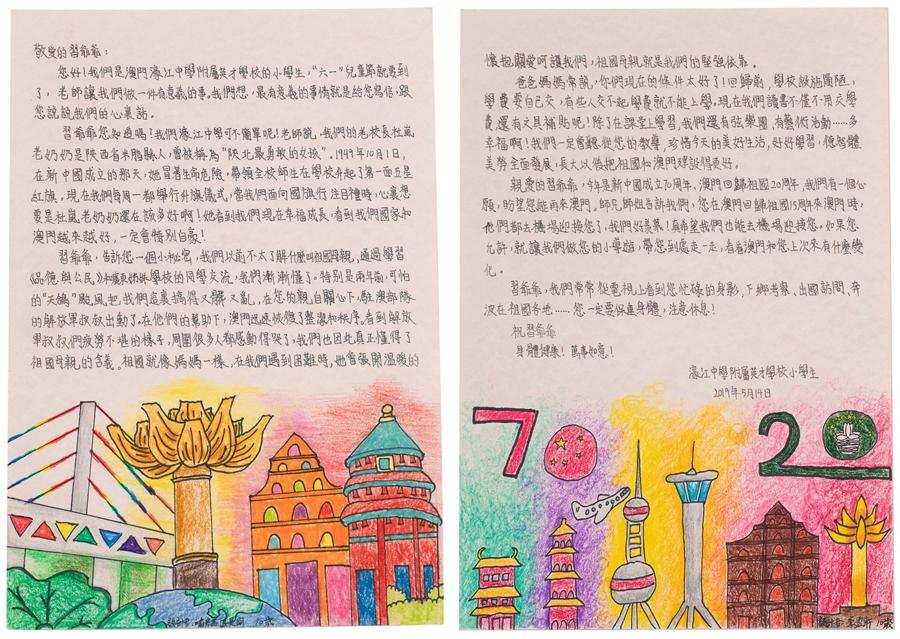 敬愛的習爺爺：
您好！我們是澳門濠江中學附屬英才學校的小學生，“六一”兒童節就要到
了，老師讓我們做一件有意義的事。我們想，最有意義的事情就是給您寫信，跟
您說說我們的心裏話。
習爺爺您知道嗎！我們濠江中學可不簡單呢！老師說，我們的老校長杜嵐
老奶奶是陝西省米脂縣人，曾被稱為“陝北最勇敢的女孩”。1949年10月1日，
在新中國成立的那天，她冒着生命危險，帶領全校師生在學校升起了第一面五星
紅旗。現在我們每周一都舉行升旗儀式，當我們面向國旗行注目禮時，心裏想
要是杜嵐老奶奶還在該多好啊！她看到我們現在幸福成長，看到我們國家和
澳門越來越好，一定會特別自豪！
習爺爺，告訴您一個小秘密，我們以前不太了解什麼叫祖國母親，通過學習
《品德與公民》學校的同學交流，我們漸漸懂了。特別是兩年前，可怕
的“天鴿”颱風把我們家裏搞得又髒又亂，在您的親自關心下，駐澳部隊
的解放軍叔叔出動了。在他們的幫助下，澳門迅速恢復了整潔和秩序。看到解放
軍叔叔們疲勞不堪的樣子，周圍很多人都感動得哭了，我們也因此真正懂得了
祖國母親的含義。祖國就像媽媽一樣，在我們遇到困難時，她會張開溫暖的
10歲
懷抱關愛呵護我們，祖國母親就是我們的堅強依靠。
爸爸媽媽常說，你們現在的條件太好了！回歸前，學校設施簡陋，
學費要自己交，有些人交不起學費就不能上學。現在我們讀書不僅不用交學
費，還有文具補貼呢！除了在課堂上學習，我們還有弦樂團，有藝術活動……多
幸福啊！我們一定會聽從您的教導，珍惜今天的美好生活，好好學習，德智體
美勞全面發展，長大以後把祖國和澳門建設得更好。
親愛的習爺爺，今年是新中國成立70周年、澳門回歸祖國20周年，我們有一個心
願，盼望您能再來澳門。師兄師姐告訴我們，您在澳門回歸祖國15周年來澳門時，
他們都去機場迎接您了，我們好羨慕！真希望我們也能去機場迎接您。如果您
允許，就讓我們做您的小導遊，帶您到處走一走，看看澳門和您上次來有什麼變
化。
習爺爺，我們常常從電視上看到您忙碌的身影，下鄉考察、出國訪問、奔
波在祖國各地……您一定要保重身體，注意休息！
祝習爺爺
身體健康！萬事如意！
濠江中學附屬英才學校小學生
2019年5月14日
70
20
10歲